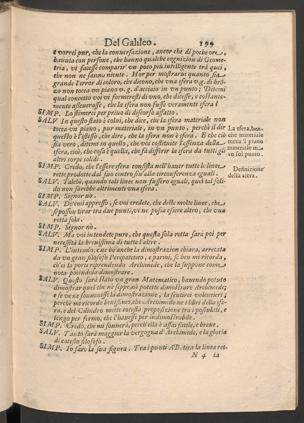 Del Galileo. 199
e vorrei pur, che la conuersazione, ancor che di poche ore,
hauuta con persone, che hanno qualche cognizion di Geome-
tria, vi facesse comparir vn poco più intelligente trà quei,
che non ne sanno niente. Hor per mostrarui quanto sia
grande l'error di coloro, che dicono, che vna sfera v. g. di bron-
zo non tocca vn piano v. g. d'acciaio in vn punto; Ditemi
qual concetto voi vi formeresti di vno, che dicesse, e costante-
mente asseuerasse, che la sfera non fusse veramente sfera?
SIMP. Lo stimerei per priuo di discorso affatto.
SALV. In questo stato è colui, che dice, che la sfera materiale non
tocca vn piano, pur materiale, in vn punto, perchè il dir
questo è l'istesso, che dire, che la sfera non è sfera. E che ciò
sia vero, ditemi in quello, che voi costituite l'essenza della
sfera, cioè, che cosa è quella, che fà differir la sfera da tutti gli
altri corpi solidi.
La sfera, ben-
che materiale
tocca 'l piano
materiale in
vn sol punto.
SIMP. Credo, che l'essere sfera consista nell'hauer tutte le linee
rette prodotte dal suo centro sin'alla circonferenza eguali.
Definizione
della sfera.
SALV. Talchè, quando tali linee non fussero eguali, quel tal soli-
do non sarebbe altrimenti vna sfera.
SIMP. Signor nò.
SALV. Ditemi appresso, se voi credete, che delle molte linee, che
si posson tirar tra due punti, vi ne possa essere altro, che vna
retta sola.
SIMP. Signor nò.
SALV. Ma voi intendete pure, che questa sola retta sarà poi per
necessità la breuissima di tutte l'altre.
SIMP. L'intendo, e ne hò anche la dimostrazion chiara, arrecata
da vn gran filosofo Peripatetico, e parmi, se ben mi ricorda,
ch'ei la porti riprendendo Archimede, che la suppone come
nota potendola dimostrare.
SALV. Questo sarà stato vn gran Matematico, hauendo potuto
dimostrar quel che nè seppe, nè potette dimostrare Archimede;
e se ve ne souuenisse la dimostrazione, la sentirei volentieri;
perchè mi ricordo benissimo, che Archimede ne i libri della sfe-
ra, e del Cilindro mette cotesta proposizione trà i postulati, e
tengo per fermo, che l'hauesse per indimostrabile.
SIMP. Credo, che mi souuerrà, perch'ella è assai facile, e breue.
SALV. Tanto sarà maggior la vergogna d'Archimede, e la gloria
di cotesto filosofo.
SIMP. Io farò la sua figura. Tra i punti AB. tira la linea ret-
N 4 ta